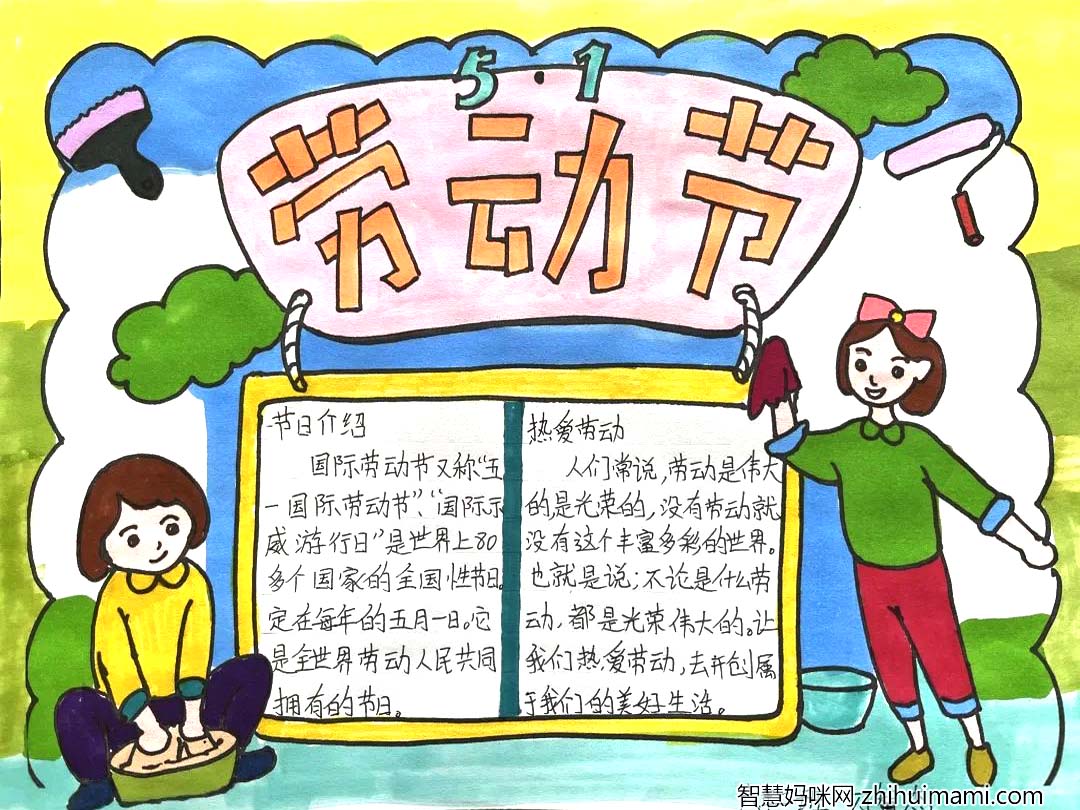 5·1
劳动节
节日介绍
国际劳动节又称“五
一国际劳动节”、“国际示
威游行日”是世界上80
多个国家的全国性节日。
定在每年的五月一日。它
是全世界劳动人民共同
拥有的节日。
热爱劳动
人们常说,劳动是伟大
的是光荣的,没有劳动就
没有这个丰富多彩的世界。
也就是说;不论是什么劳
动,都是光荣伟大的。让
我们热爱劳动,去开创属
于我们的美好生活。
智慧妈咪网-zhihuimami.com